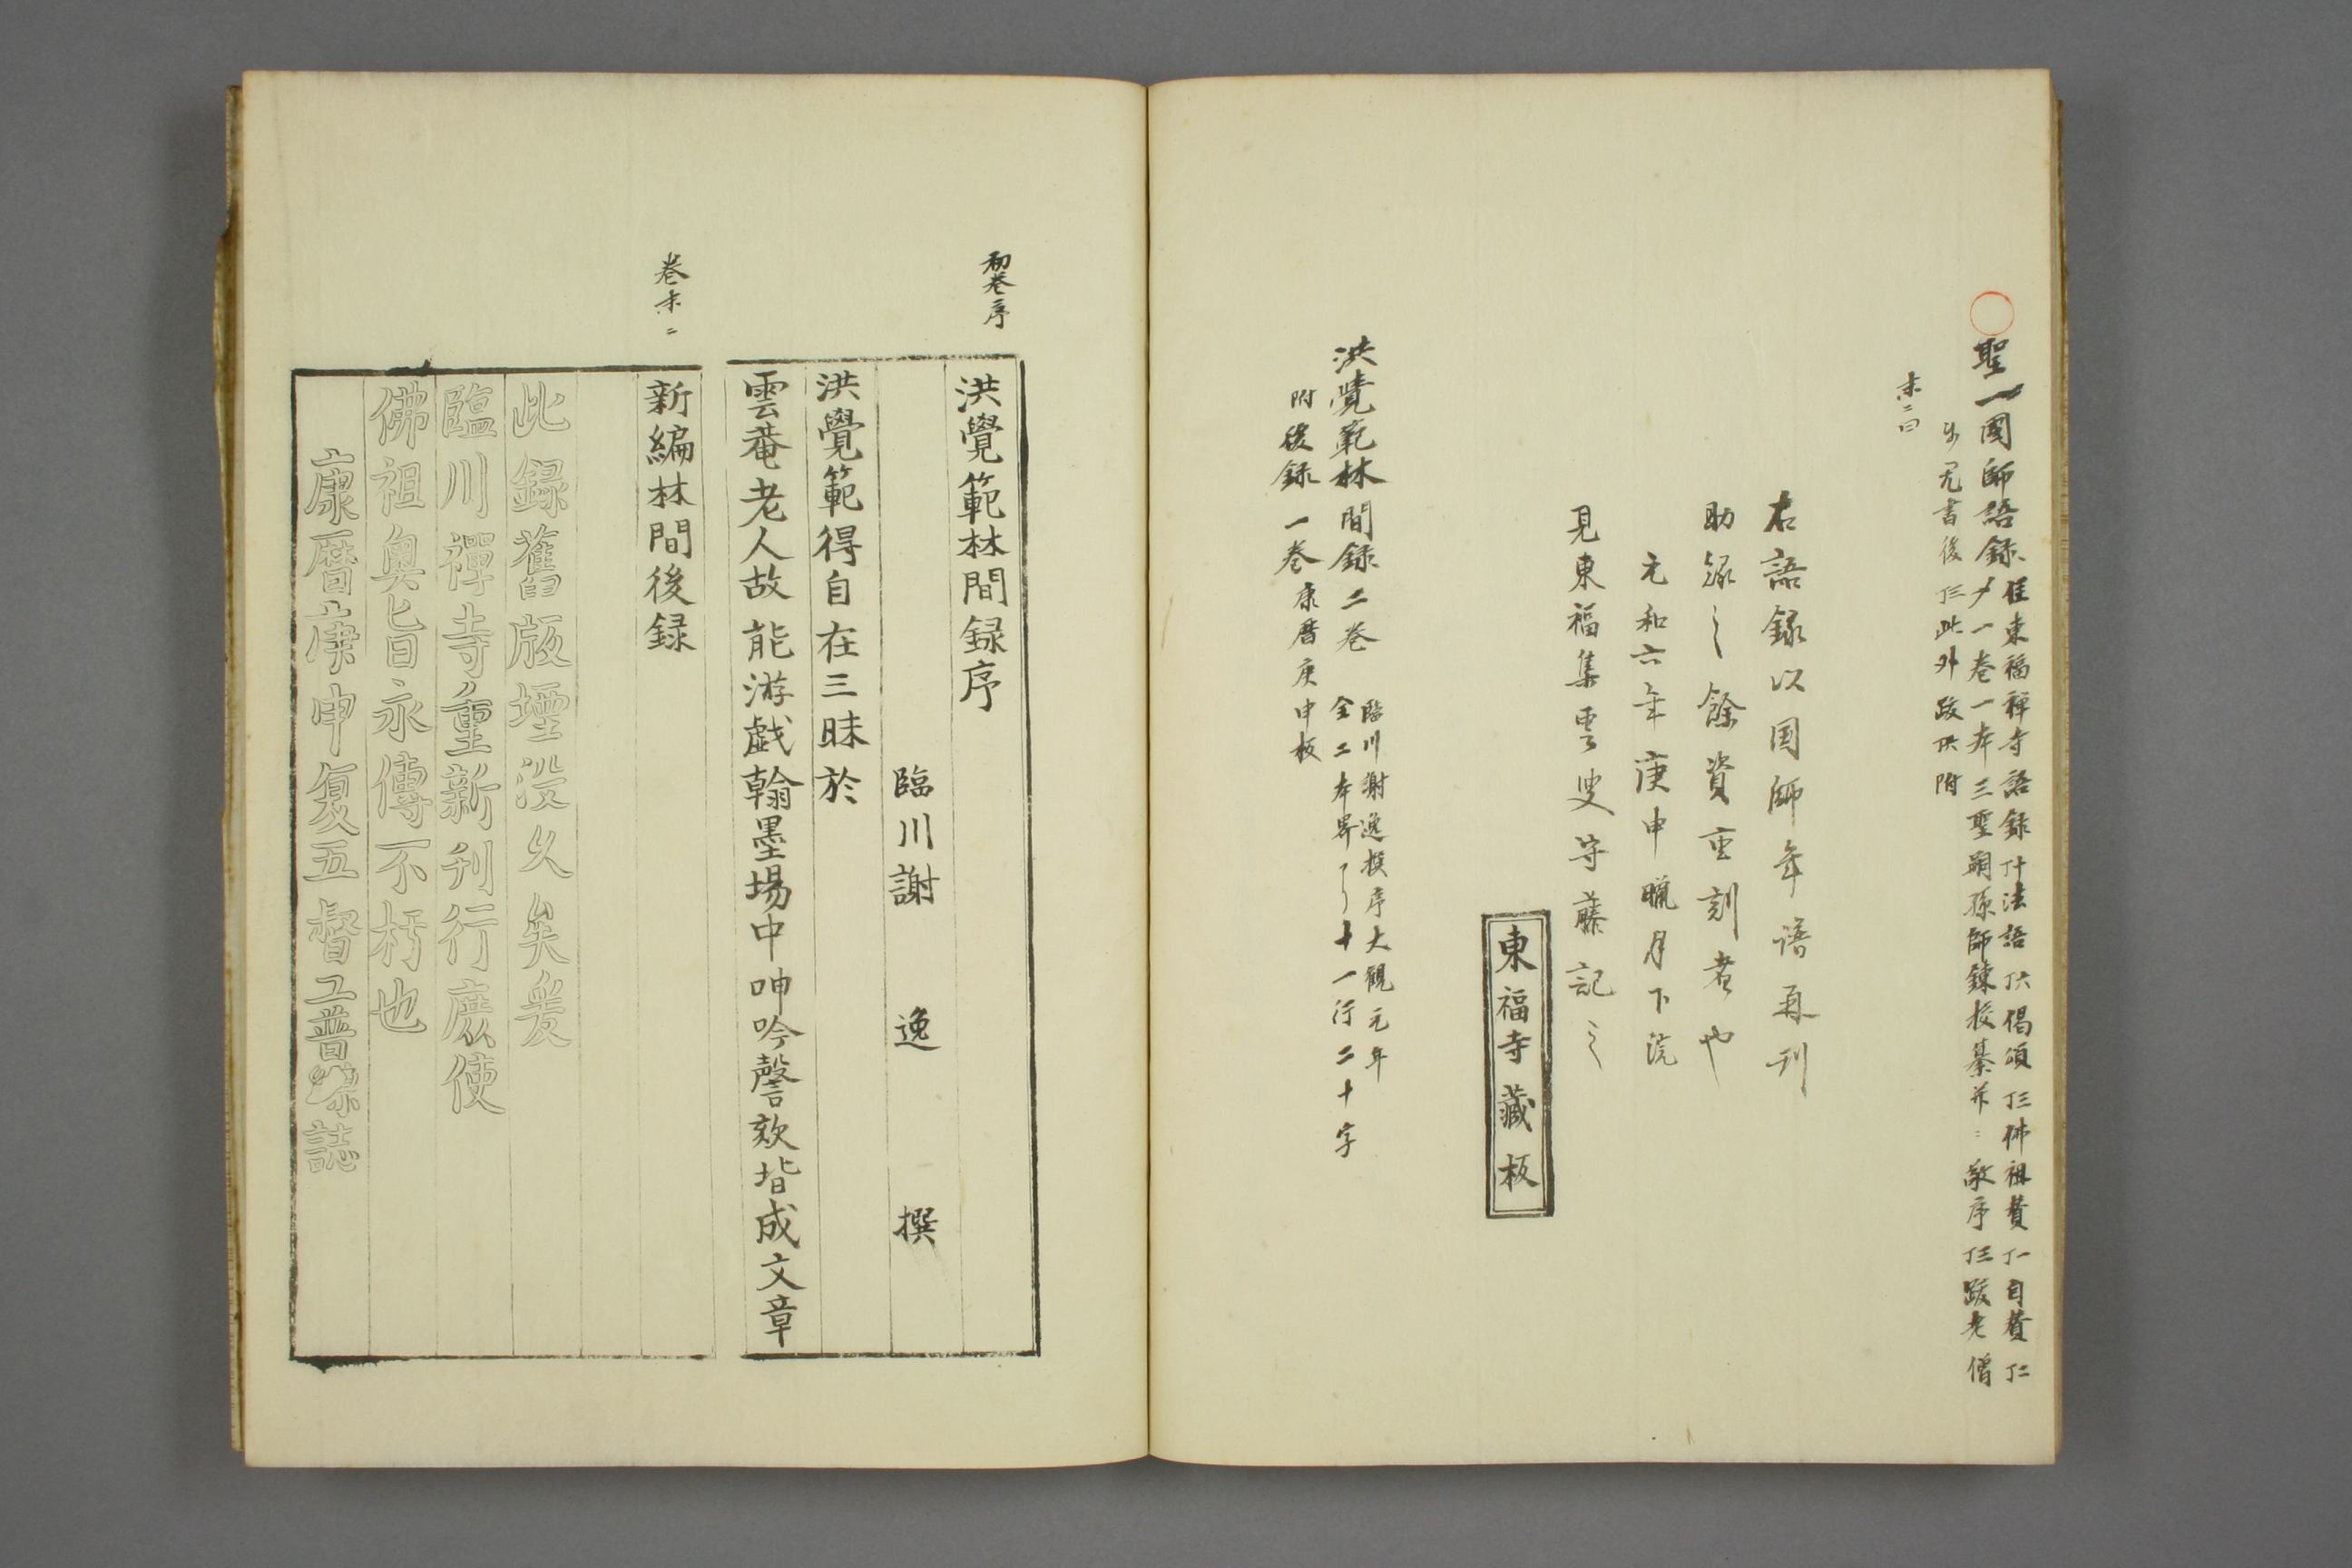 聖一國師語録
住東福禪寺語録 法語 偈頌 佛祖賛 自賛
一卷一本三聖嗣孫師錬校纂 敬序 跋老僧
書後 此外跋 附
末ニ曰
右語録以国師年譜再刊
助縁之餘資重刻者也
元和六年庚申臘月下浣
見東福集雲叟守藤記之
東福寺藏板
洪覺範林間録二卷
臨川謝逸撰序大觀元年
全二本界 十一行二十字
附後録一卷康暦庚申板
初卷序
洪覺範林間録序
臨川謝逸撰
洪覺範得自在三昧於
雲菴老人故能游戯翰墨場中呻吟謦欬皆成文章
卷末ニ
新編林間後録
此録舊版堙没久矣爰
臨川禪寺重新刊行庶使
佛祖奥旨永傳不朽也
康暦庚申夏五督工普 誌